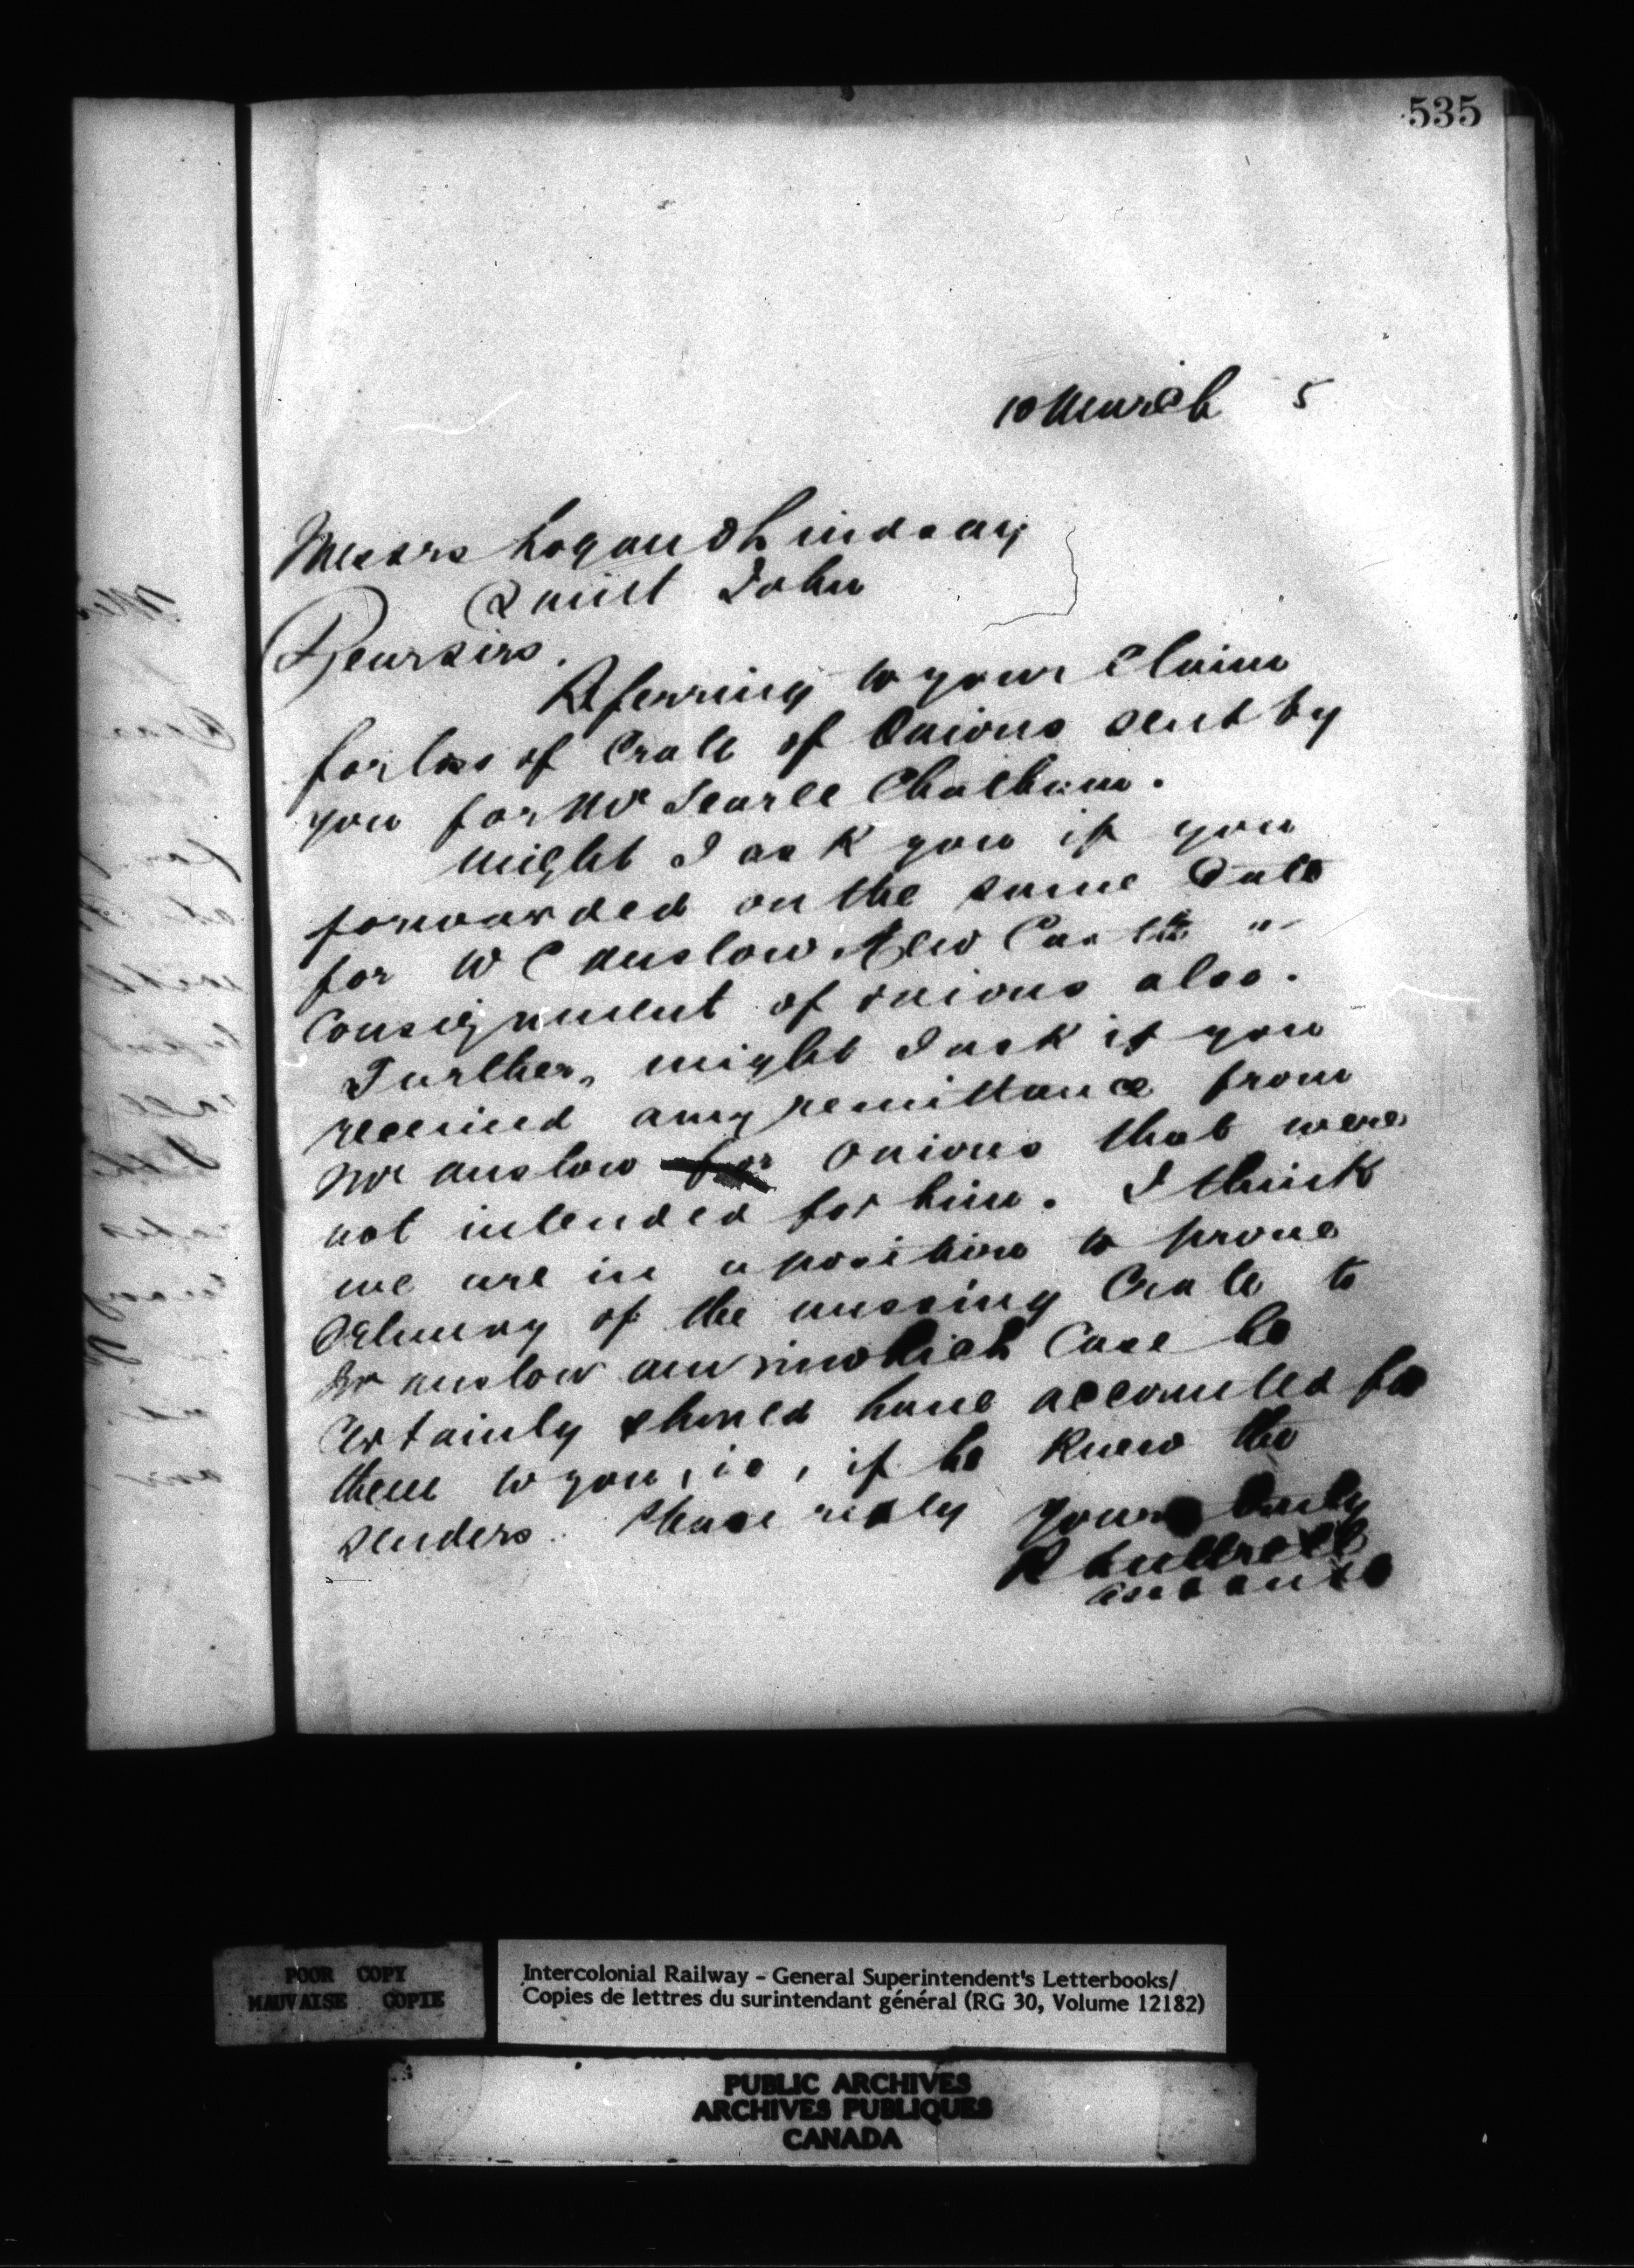 535
10 March 5
Messrs Logan & Lindsay
Saint John
Dear Sirs.
Referring to your Claim
for loss of Crate of Onions sent by
you for Mr Searle Chatham.
Might I ask you if you
forwarded on the same Date
for W C Anslow New Castle a
Consignment of onions also.
Further, might I ask if you
received any remittance from
Mr Anslow for onions that were
not intended for him. I think
we are in a position to prove
Delivery of the missing Crate to
Mr Anslow in which Case he
Certainly should have accounted for
them to you, ie, if he knew the
senders. Please reply Yours truly
R Luttrell
POOR COPY
MAUVAISE COPIE
Intercolonial Railway - General Superintendent's Letterbooks/
Copies de lettres du surintendant général (RG 30, Volume 12182)
PUBLIC ARCHIVES
ARCHIVES PUBLIQUES
CANADA